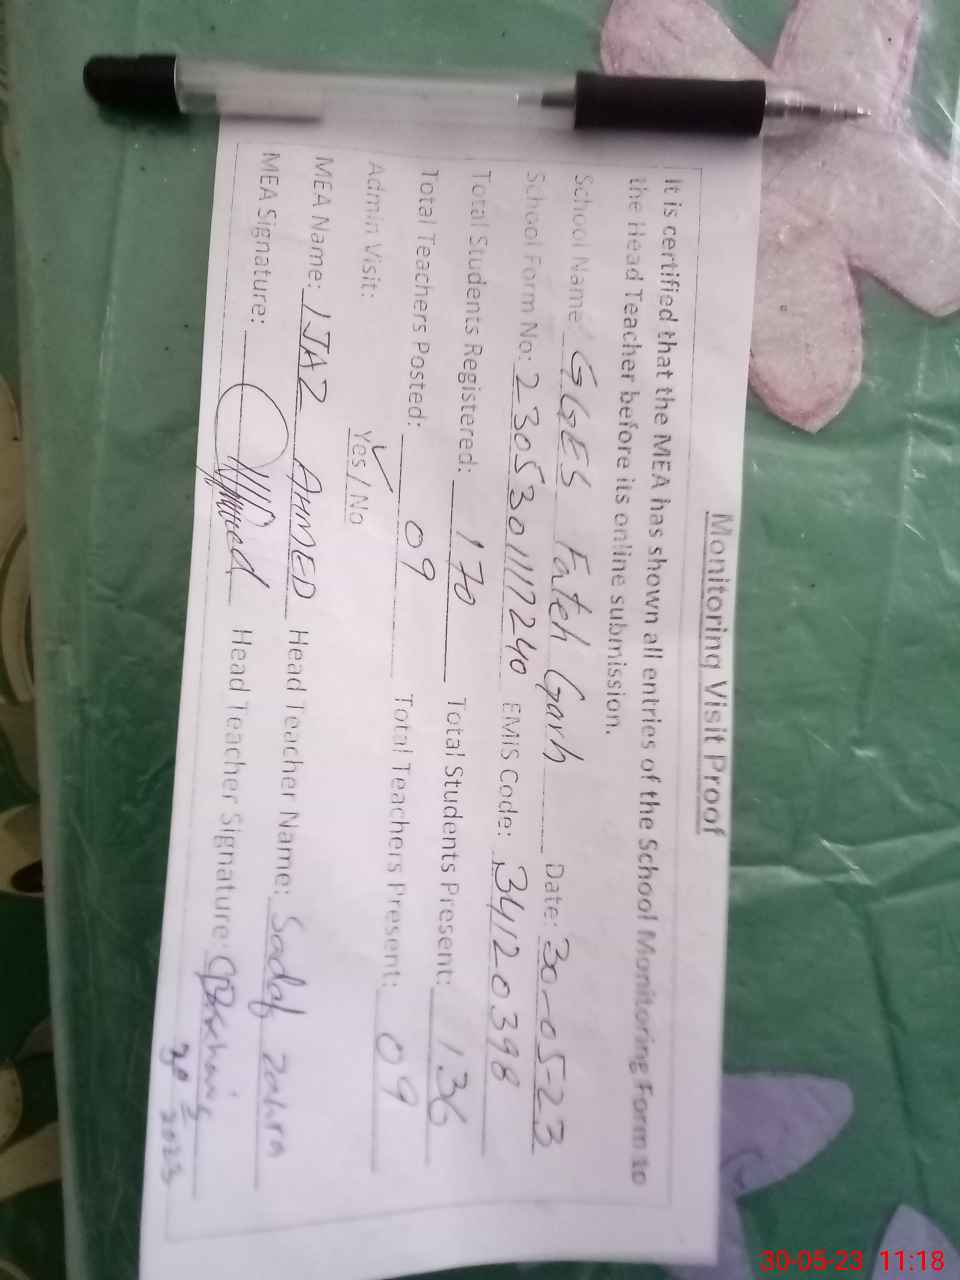 Monitoring Visit Proof
It is certified that the MEA has shown all entries of the School Monitoring Form to
the Head Teacher before its online submission.
School Name: GGES Fateh Garh Date: 30-05-23
School Form No: 2305301117240 EMIS Code: 34120398
Total Students Registered: 170 Total Students Present: 136
Total Teachers Posted: 09 Total Teachers Present: 09
Admin Visit: Yes / No
MEA Name: IJAZ AHMED Head Teacher Name: Sadaf Zahra
MEA Signature: Head Teacher Signature:
30-5
2023
30-05-23 11:18